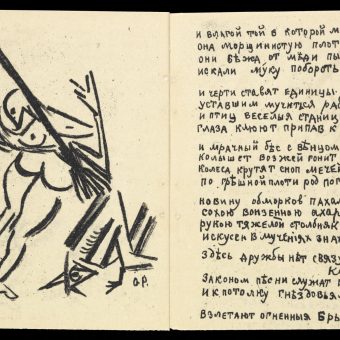 О.Р.
и влагой той в которой м
она морщинистую плот
они вѣжд от мѣди пы
искали муку побороть
и черти ставят единицы
уставшим мучиться раб
и птиц веселыя станиц
глаза клюют припав к
и мрачный бѣс с вѣнцом
колышет возжей гонит
колеса крутят сноп мечей
по грѣшной плоти род пог
новину обмороков пахал
сохою вонзенною
рукою тяжелой столбняк
искусен в мученях зна
здѣсь дружбы нѣт связу
Законом пѣсни служат
и к потолку гнѣздовья
взлетают огненныя